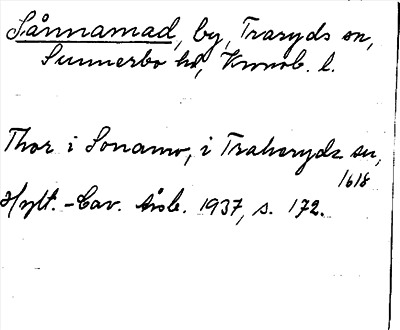 Sånnamad, by, Traryds sn,
Sunnerbo hd, Kronob. l.
Thor i Sonamo, i Traheryds sn,
1618
Hylt.-Cav. Årsb. 1937, s. 172.